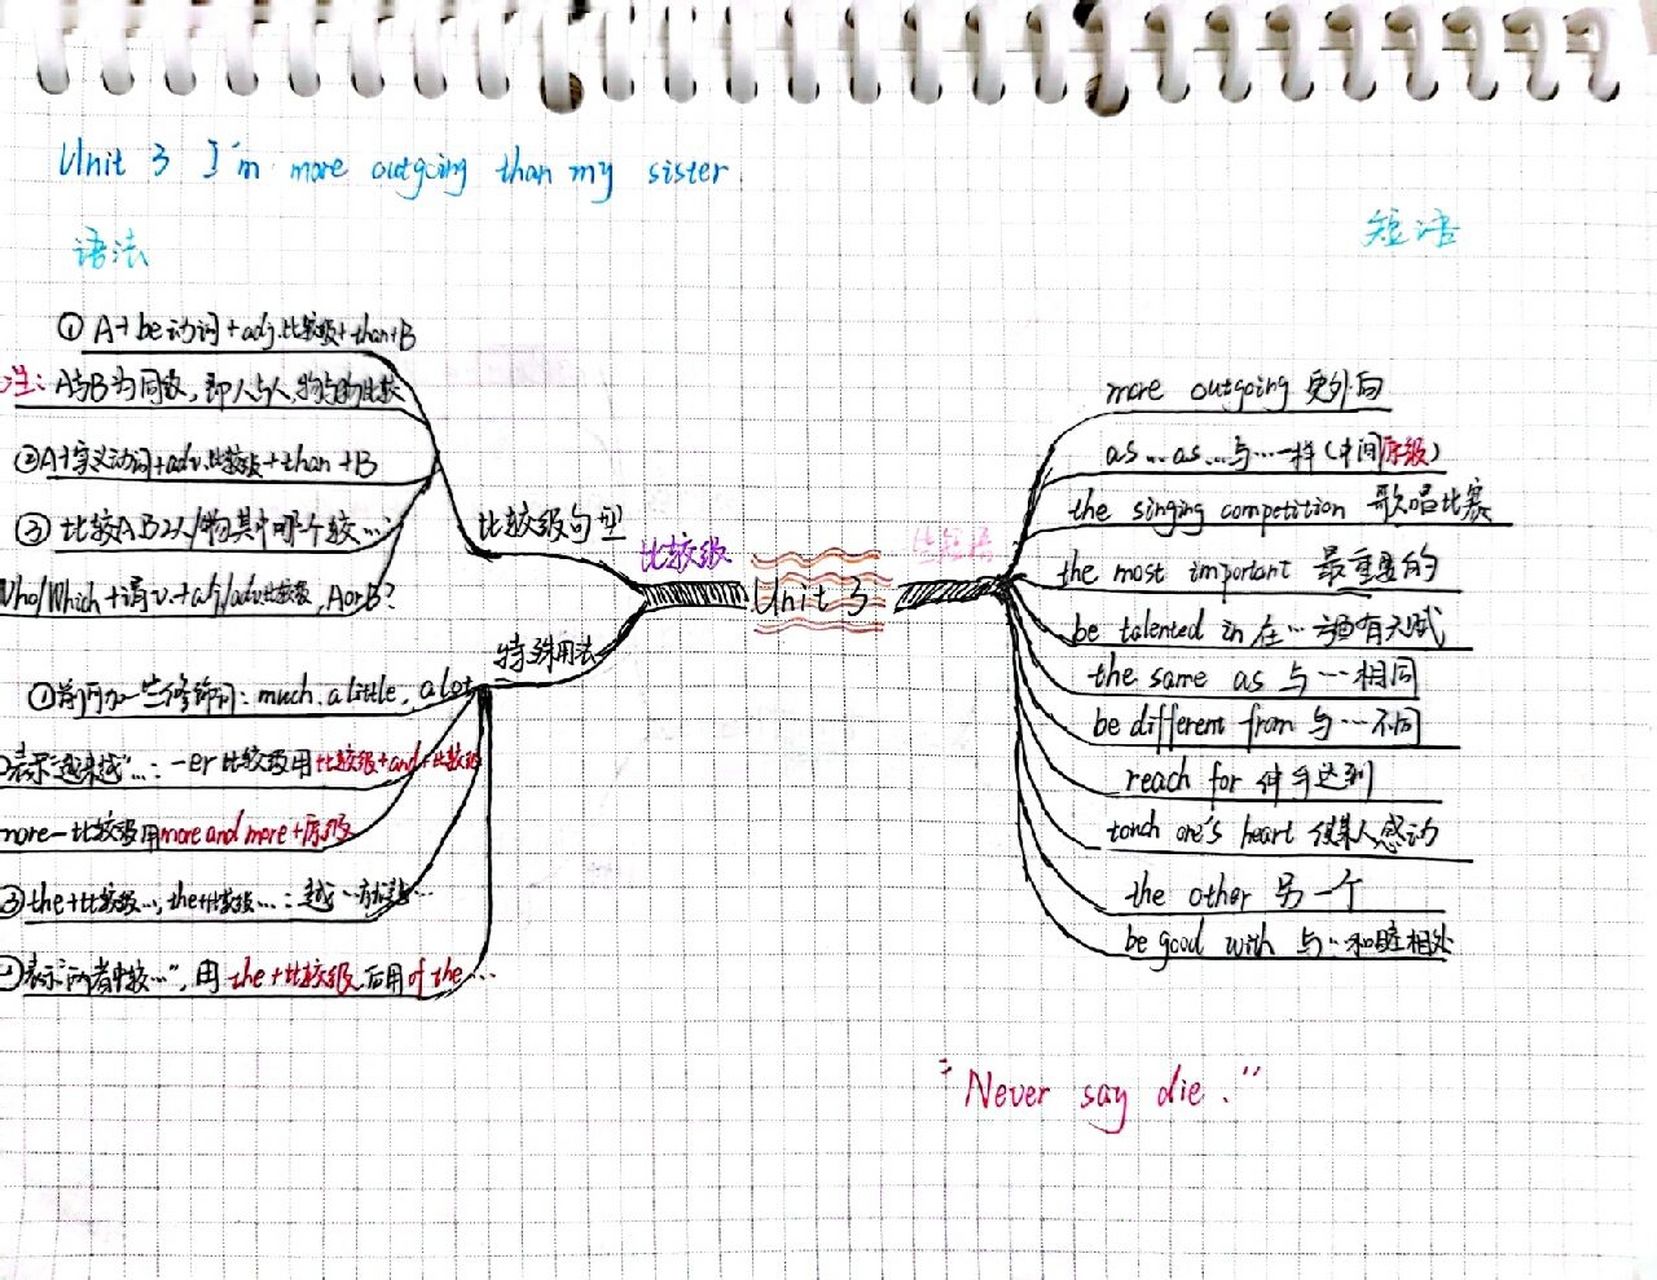 Unit 3 I'm more outgoing than my sister
语法
短语
① A+be动词+adj.比较级+than+B
注: A与B为同级, 即人与人,物与物比较
②A+实义动词+adv.比较级+than+B
③ 比较A,B2人/物其中哪个较…:
Who/Which+谓v.+adj/adv比较级,AorB?
比较级句型
特殊用法
①前可加一些修饰词: much, a little, a lot
表示"越来越"…: -er比较级用比较级+and+比较级
more-比较级用more and more+原级
③the+比较级…,the+比较级…: 越…就越…
④表示"两者中较…",用 the+比较级,后用of the…
比较级
Unit 3
more outgoing 更外向
as…as…与…一样(中间原级)
the singing competition 歌唱比赛
the most important 最重要的
be talented in 在…方面有天赋
the same as 与…相同
be different from 与…不同
reach for 伸手达到
touch one's heart 使某人感动
the other 另一个
be good with 与…和睦相处
"Never say die."